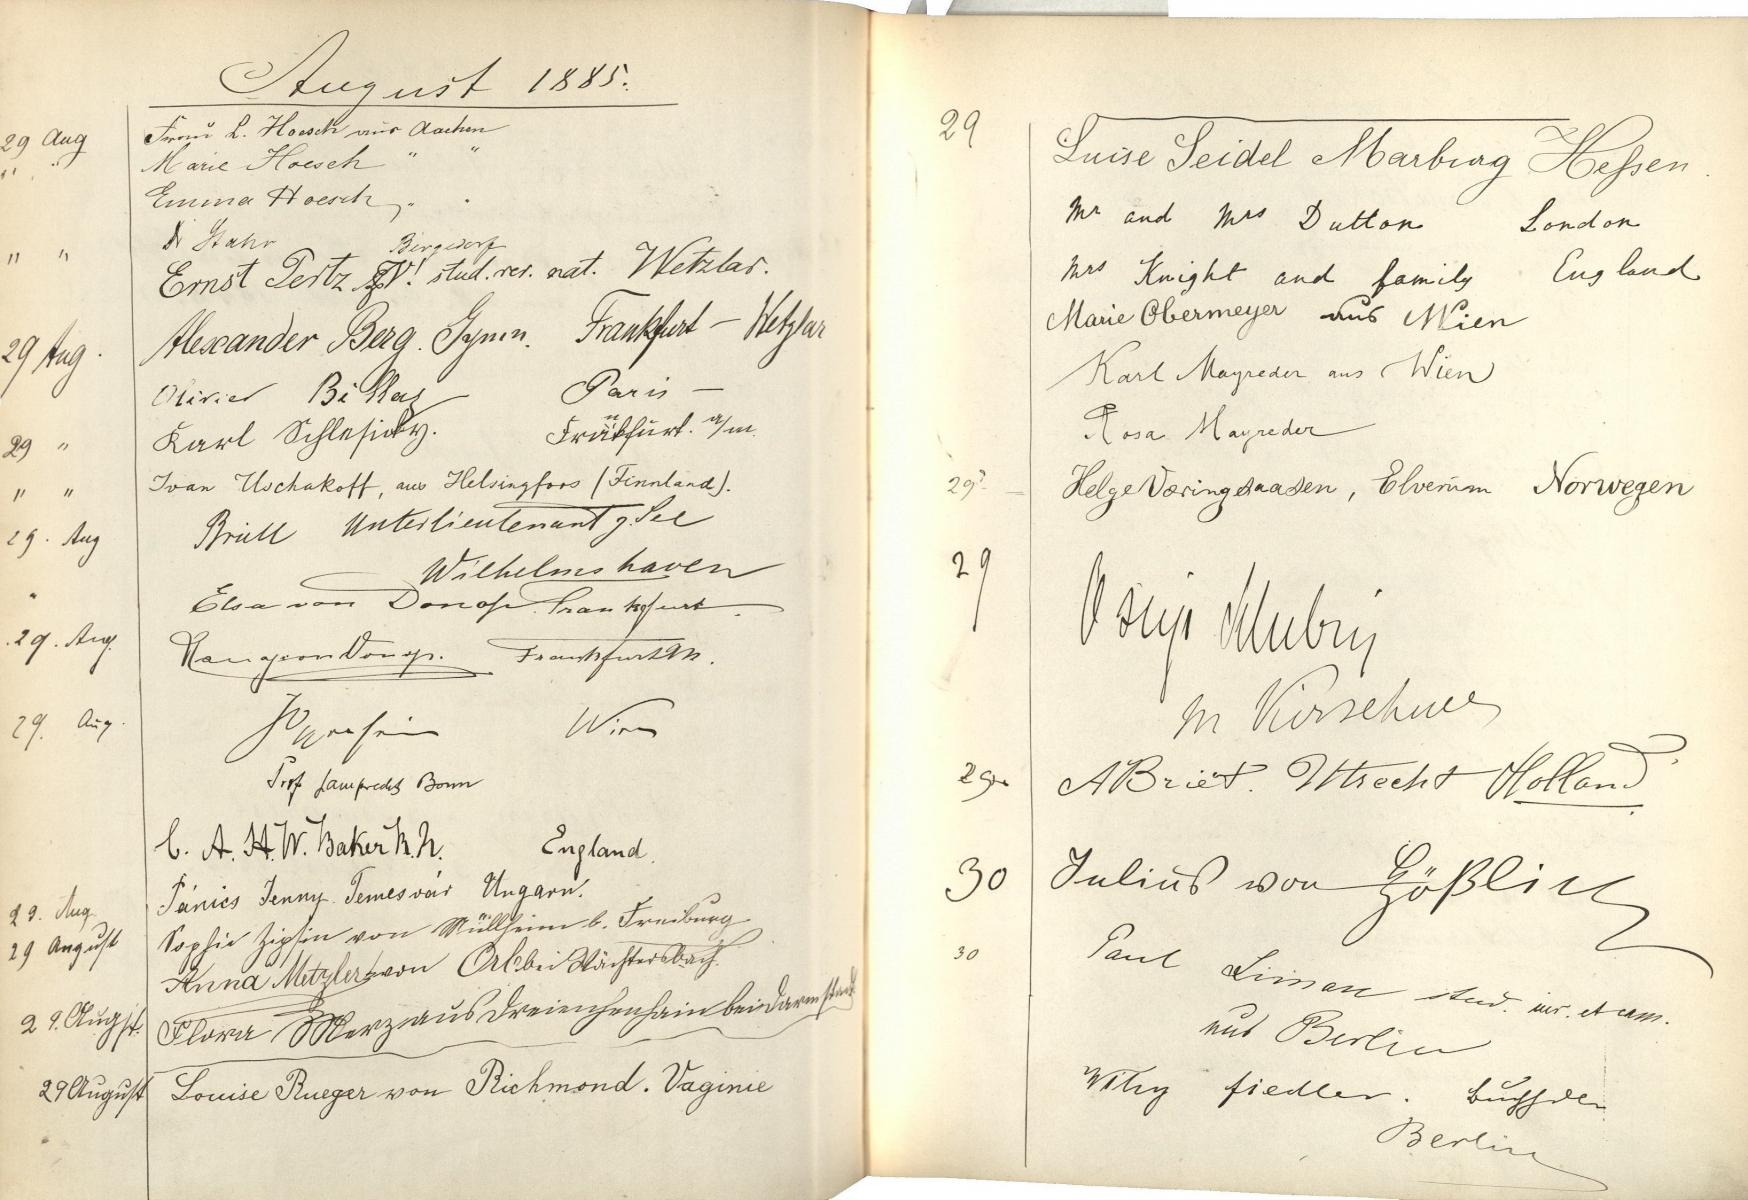 August 1885.
29 Aug Frau L. Hoesch aus Aachen
" " Marie Hoesch " "
Emma Hoesch " "
Dr Stahr Bergedorf
" " Ernst Pertz stud. rer. nat. Wetzlar.
29 Aug. Alexander Berg. Gymn. Frankfurt – Wetzlar
Olivier Paris –
29 " Karl Schlesicky. Frankfurt a/m.
" " Ivan Uschakoff, aus Helsingfors (Finnland).
29. Aug Brüll Unterlieutenant z. See
Wilhelmshaven
" Elsa von Donop. Frankfurt
29. Aug. von Donop. Frankfurt M.
29. Aug. Wien
Prof Lamprecht Bonn
C. A. H. W. Baker R.N. England.
29. Aug. Pánics Jenny Temesvár Ungarn.
29 August Sophie Zipfin von Müllheim b. Freiburg
Anna Metzler von Orb bei Wächtersbach.
29. August. Flora Merz aus Dreieichenhain bei Darmstadt
29 August Louise Rueger von Richmond. Vaginie
29 Luise Seidel Marburg Hessen.
Mr and Mrs Dutton London
Mrs Knight and family England
Marie Obermeyer aus Wien
Karl Mayreder aus Wien
Rosa Mayreder
29 Helge Væringsaasen, Elverum Norwegen
29
M Kirschner
29 A Briët. Utrecht Holland.
30 Julius von Gößlin
30 Paul Liman stud. iur. et cam.
aus Berlin
Willy Fiedler. Buchhdlr
Berlin